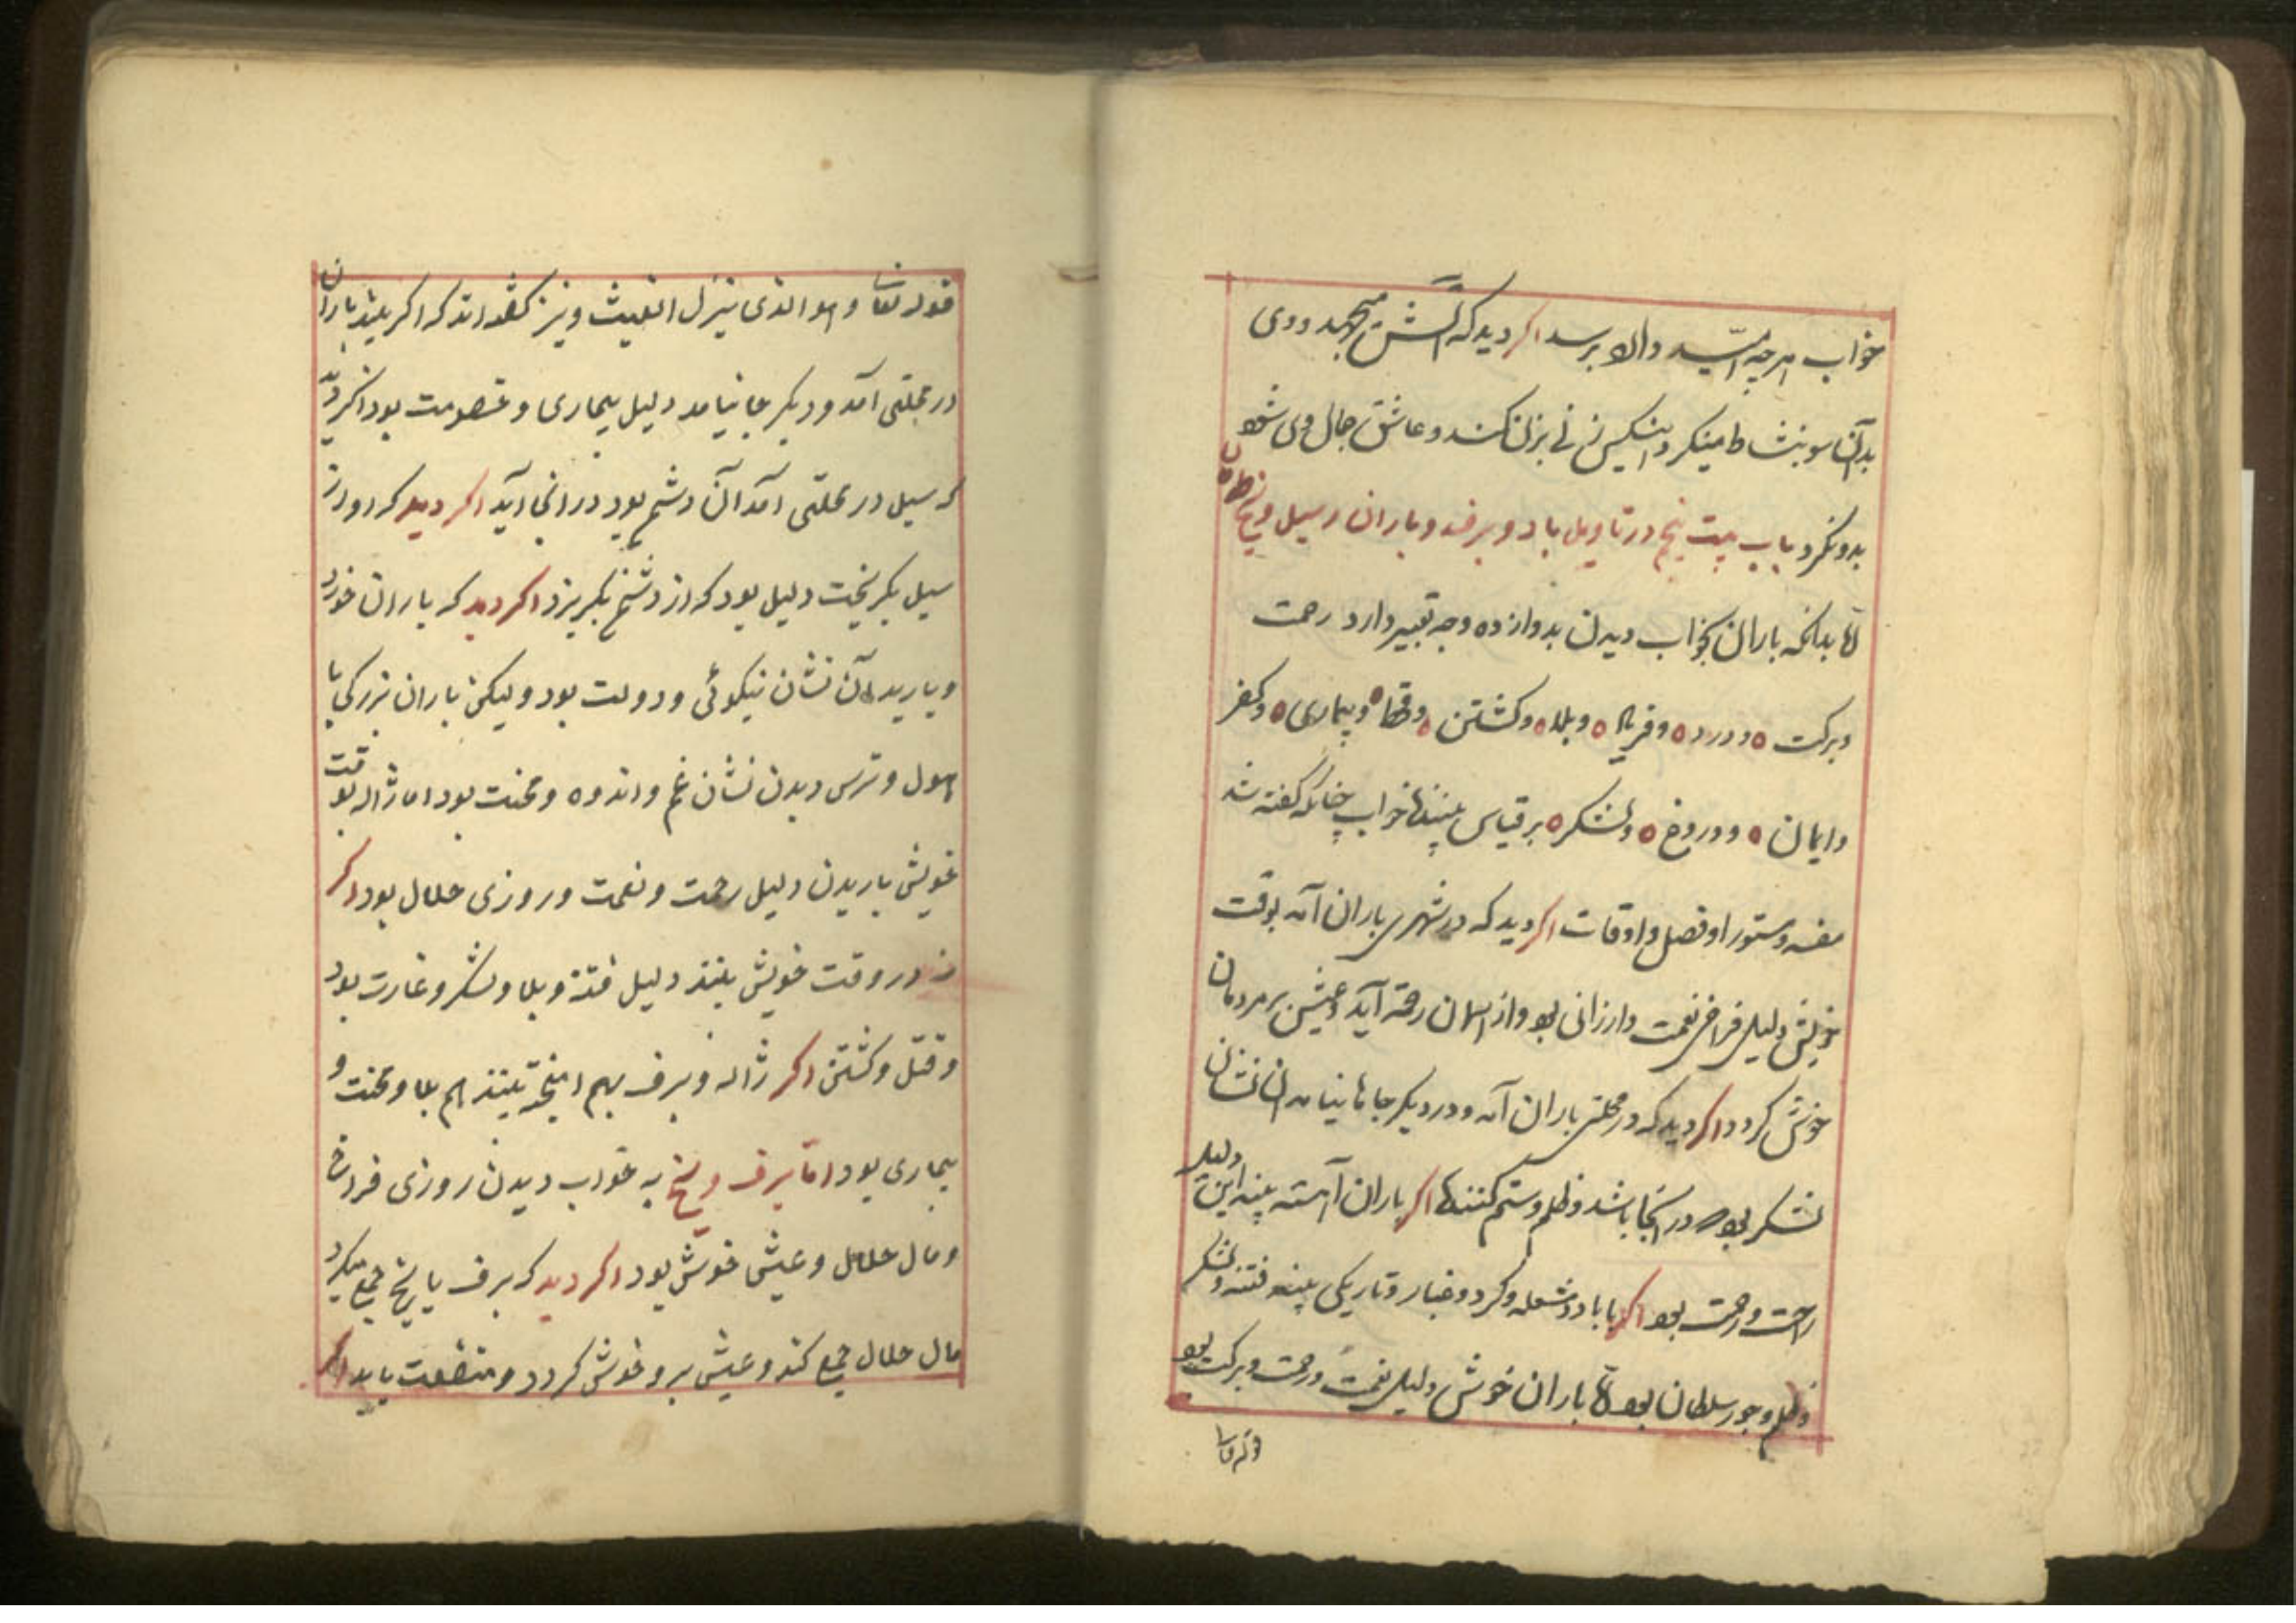 خواب هرچه امید دارد برسد اکر دید که آتش میجهد و وی
بدان سو بنشاط مینکرد انیکس زنی بزنی کند و عاشق جمال وی شود
بدو نکرد باب بیست پنج در تاویل باد و برف و باران و سیل و یخ
اما بدانکه باران بخواب دیدن بدوازده وجه تعبیر دارد رحمت
و برکت و درد و فریاد و بلا و کشتن و قحط و بیماری و کفر
و ایمان و دروغ و لشکر بر قیاس بیننده خواب چنانکه کفته شد
مفسد و مستور او فصل و اوقات اکر دید که در شهری باران آمد بوقت
خویش دلیل فراخی نعمت و ارزانی بود و از اسمان رحمة آید و عیش بر مردمان
خوش کردد اکر دید که در محلتی باران آمد و در دیکر جاها نیامد ان نشان
لشکر بود در آنجا باشد و ظلم و ستم کنندها اکر باران آهسته بیند این دلیل
راحت و رحمت بود اکر با باد و شعله و کرد و غبار و تاریکی بیند فتنه و لشکر
و ظلم و جور سلطان بود اما باران خوش دلیل نعمت و رحمت و برکت بود
قوله تعا
قوله تعالی و هو الذی ینزل الغیث و نیز کفته اند که اکر بیند باران
در محلتی آمد و دیکر جا نیامد دلیل بیماری و خصومت بود اکر دید
که سیل در محلتی آمد آن دشمن بود در انجا آید اکر دید که او از
سیل بکریخت دلیل بود که از دشمن بکریزد اکر دید که باران خورد
و باریدن آن نشان نیکوئی و دولت بود ولیکن باران بزرکی با
هول و ترس دیدن نشان غم و اندوه و محنت بود اما ژاله بوقت
خویش باریدن دلیل رحمت و نعمت و روزی حلال بود اکر
نه در وقت خویش بیند دلیل فتنه و بلا و لشکر و غارت بود
و قتل و کشتن اکر ژاله و برف بهم امیخته بیند هم بلا و محنت و
بیماری بود اما برف و یخ به خواب دیدن روزی فراخ
و مال حلال و عیش خوش بود اکر دید که برف یا یخ جمع میکرد
مال حلال جمع کند و عیش برو خوش کردد و منفعت یابد اکر